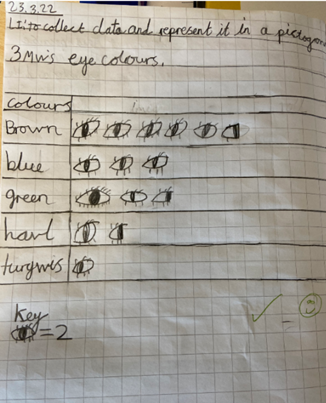 23.3.22
LI: to collect data and represent it in a pictogram
3MW's eye colours.
colours
Brown
blue
green
hazl
turqwis
key
= 2